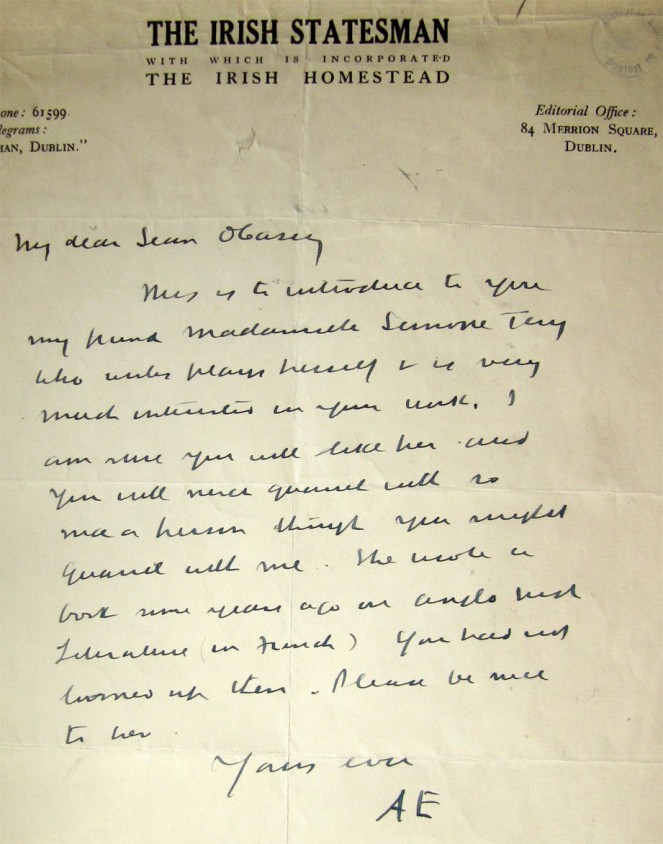 THE IRISH STATESMAN
WITH WHICH IS INCORPORATED
THE IRISH HOMESTEAD
one: 61599
legrams:
IAN, DUBLIN."
Editorial Office:
84 MERRION SQUARE,
DUBLIN.
My dear Sean OCasey
This is to introduce to you
my friend Mademoiselle Simone Tery
who writes plays herself & is very
much interested in your work. I
am sure you will like her and
you will never quarrel with so
a person though you might
quarrel with me. She wrote a
book some years ago on Anglo Irish
Literature (in French) You had not
loomed up then. Please be nice
to her
Yours ever
AE